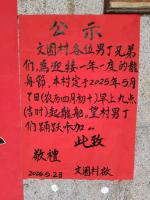 公示
文園村各位男丁兄弟
们,為迎接一年一度的龍
舟節,本村定于2025年5月
7日(农历四月初十)早上九点
(吉时)起龍船,望村男丁
们踊跃参加。
此致
敬禮
文園村啟
2025.5.2日